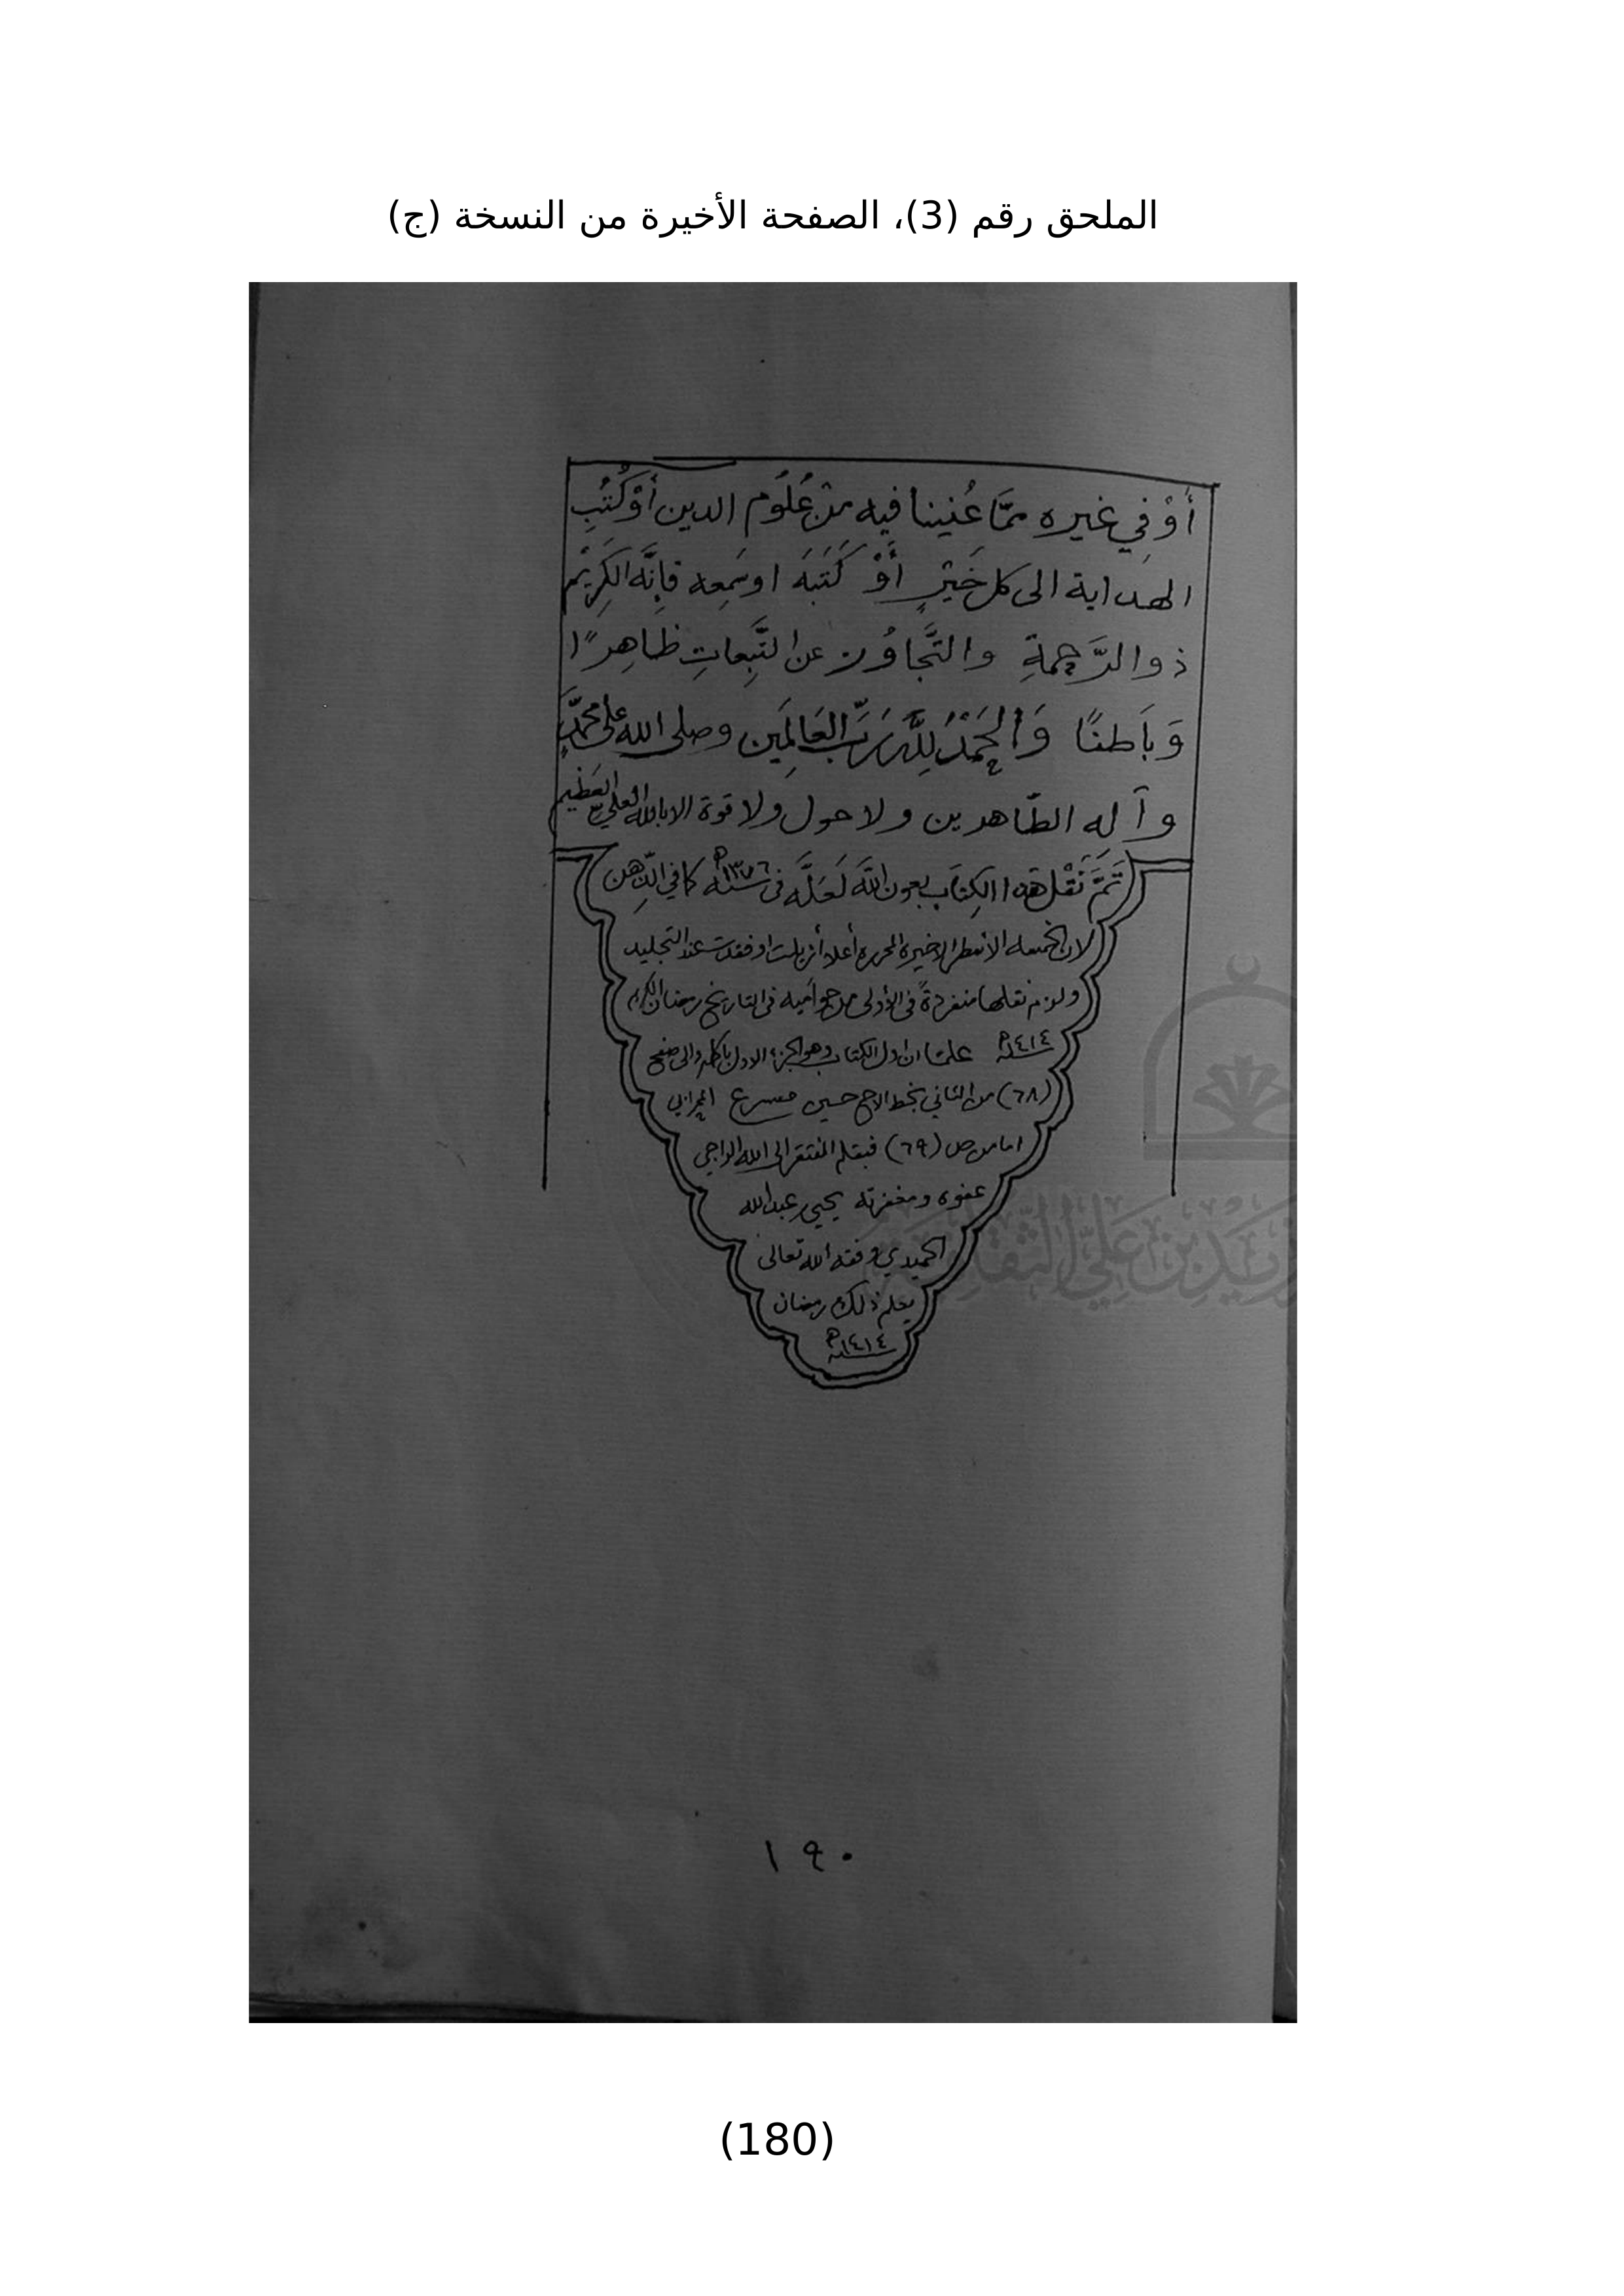 الملحق رقم (3)، الصفحة الأخيرة من النسخة (ج)
أَوْ فِي غيره ممَّا عُنينا فيه من عُلُوم الدين أَوْ كُتُبِ
الهداية الى كل خَيْرٍ أَوْ كَتَبَهَ اوسَمِعه فَإِنَّه الكَرِيْم
ذوالرَّحمةِ والتَّجَاوُز عن التَّبِعاتِ ظَاهِرًا
وَبَاطنًا وَالحَمْدُ لِلَّه رَبِّ العَالَمِين وصلى الله على محمَّدٍ
وآله الطَّاهرين ولا حول ولا قوة الا بالله العلي العظيم
تَمَّ نَقْل هذا الكِتَاب بعون الله لَعَلَّه فى سنة ١٣٧٦ھ كما في الذِّهن
لان الخمسه الأسطر الاخيره المحرره أعلا أزيلت او فقدت عند التجليد
ولزم نقلها منفردةً فى الأولى من حواميه فى التاريخ رمضان الكريم
١٤١٤ھ علمًا ان اول الكتاب وهو الجزء الاول بأكمله والى صفح
(٦٨) من الثاني بخط الاخ حسين مسرع
اما من ص (٦٩) فبقلم المفتقر الى الله الراجي
عفوه ومغفرته يحيى عبدالله
الحميدي وفقه الله تعالى
بعلم ذلك رمضان
١٤١٤ھ
زيد بن علي الثقافية
١٩٠
(180)